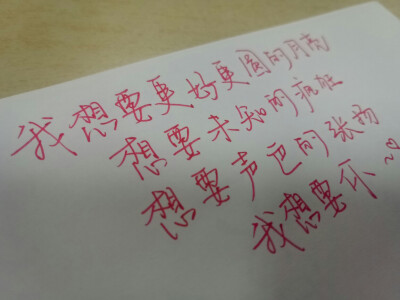 我想要更好更圆的月亮
想要未知的疯狂
想要声色的张扬
我想要你~